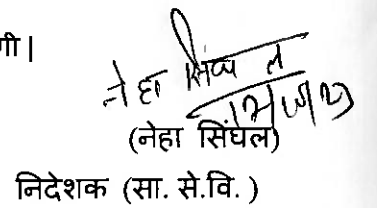 गी|
नेहा सिंघल
(नेहा सिंघल)
निदेशक (सा. से.वि. )